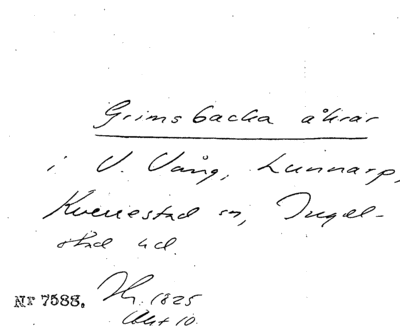 Grimsbacka åkrar
i V. Vång, Lunnarp,
Kverrestad sn, Ingel-
stad hd.
Nr 7588. Hr. 1825
Akt 10.